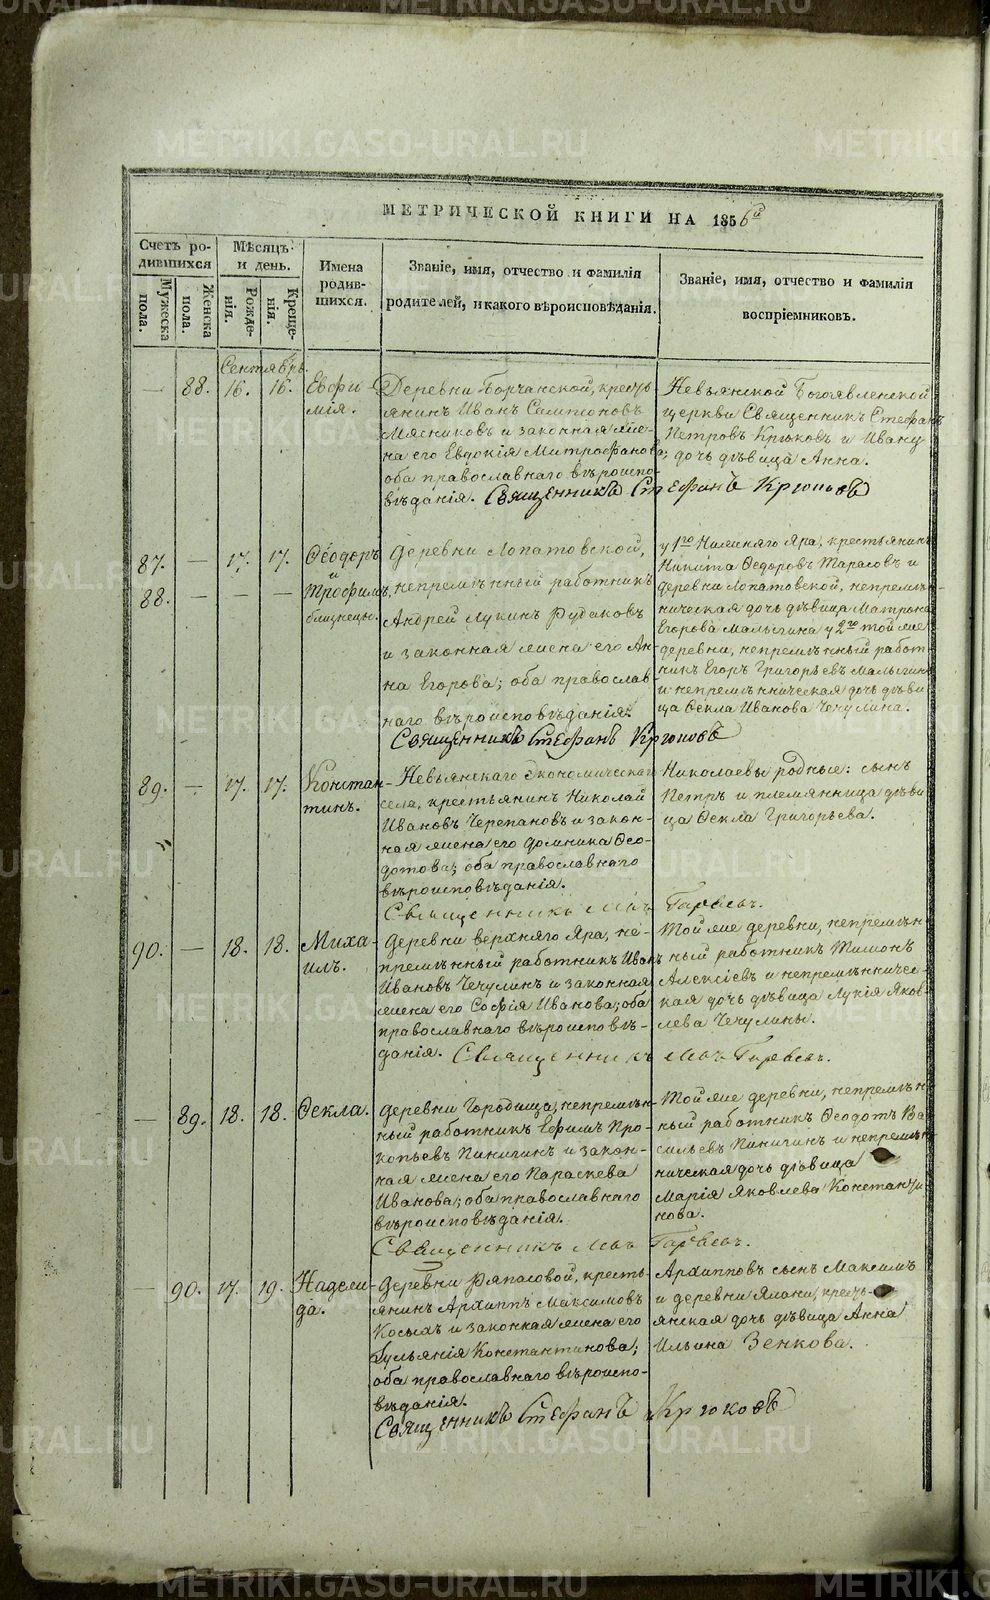 МЕТРИЧЕСКОЙ КНИГИ НА 1856й
Счетъ родившихся
Мужеска пола.
Женска пола.
Мѣсяцъ и день.
Рожденія.
Крещенія.
Имена родившихся.
Званіе, имя, отчество и фамилія
родителей, и какого вѣроисповѣданія.
Званіе, имя, отчество и фамилія
воспріемниковъ.
Сентябрь.
— 88. 16. 16. Евфи-
мія.
Деревни Борчанской, кресть
янинъ Иванъ Сампсоновъ
Мясниковъ и законная же-
на его Евдокія Митрофанова;
оба православнаго вѣроиспо-
вѣданія. Священникъ Стефанъ Крюковъ
Невьянской Богоявленской
церкви Священникъ Стефанъ
Петровъ Крюковъ и
дочь дѣвица Анна.
87. — 17. 17. Ѳеодоръ
и
88. — — — Трофимъ,
близнецы.
Деревни Лопатовской,
непремѣнный работникъ
Андрей Лукинъ Рудаковъ
и законная жена его Ан-
на Егорова; оба православ
наго вѣроисповѣданія.
Священникъ Стефанъ Крюковъ
у 1го Нижняго Яра, крестьянинъ
Никита Ѳедоровъ Тарасовъ и
деревни Лопатовской, непремѣн-
ническая дочь дѣвица Матрона
Егорова Малыгина у 2го той же
деревни, непремѣнный работ-
никъ Егоръ Григорьевъ Малыгинъ
и непремѣнническая дочь дѣви-
ца Ѳекла Иванова Чечулина.
89. — 17. 17. Констан-
тинъ.
Невьянскаго Экономическаго
села, крестьянинъ Николай
Ивановъ Черепановъ и закон-
ная жена его Домника Ѳео-
дотова; оба православнаго
вѣроисповѣданія.
Священникъ Левъ Гаряевъ.
Николаевы родные: сынъ
Петръ и племянница дѣви
ца Ѳекла Григорьева.
90. — 18. 18. Миха-
илъ.
Деревни верхняго Яра, не-
премѣнный работникъ Иванъ
Ивановъ Чечулинъ и законная
жена его Софія Иванова; оба
православнаго вѣроисповѣ-
данія. Священникъ Левъ Гаряевъ.
Той же деревни, непремѣн
ный работникъ Тимонъ
Алексіевъ и непремѣнничес-
кая дочь дѣвица Лукія Яков-
лева Чечулины.
— 89. 18. 18. Ѳекла.
Деревни Городища, непремѣн-
ный работникъ Ефимъ Про-
копьевъ Пинигинъ и закон-
ная жена его Параскева
Иванова; оба православнаго
вѣроисповѣданія.
Священникъ Левъ Гаряевъ.
Той же деревни, непремѣн
ный работникъ Ѳеодотъ Ва
сильевъ Пинигинъ и непремѣн
ническая дочь дѣвица
Марія Яковлева Константи
нова.
— 90. 17. 19. Надежи-
да.
Деревни Ряпасовой, кресть-
янинъ Архиппъ Максимовъ
Косыхъ и законная жена его
Іульянія Константинова;
оба православнаго вѣроиспо-
вѣданія.
Священникъ Стефанъ Крюковъ
Архипповъ сынъ Максимъ
и деревни Ялани, кресть-
янская дочь дѣвица Анна
Ильина Зенкова.
METRIKI.GASO-URAL.RU